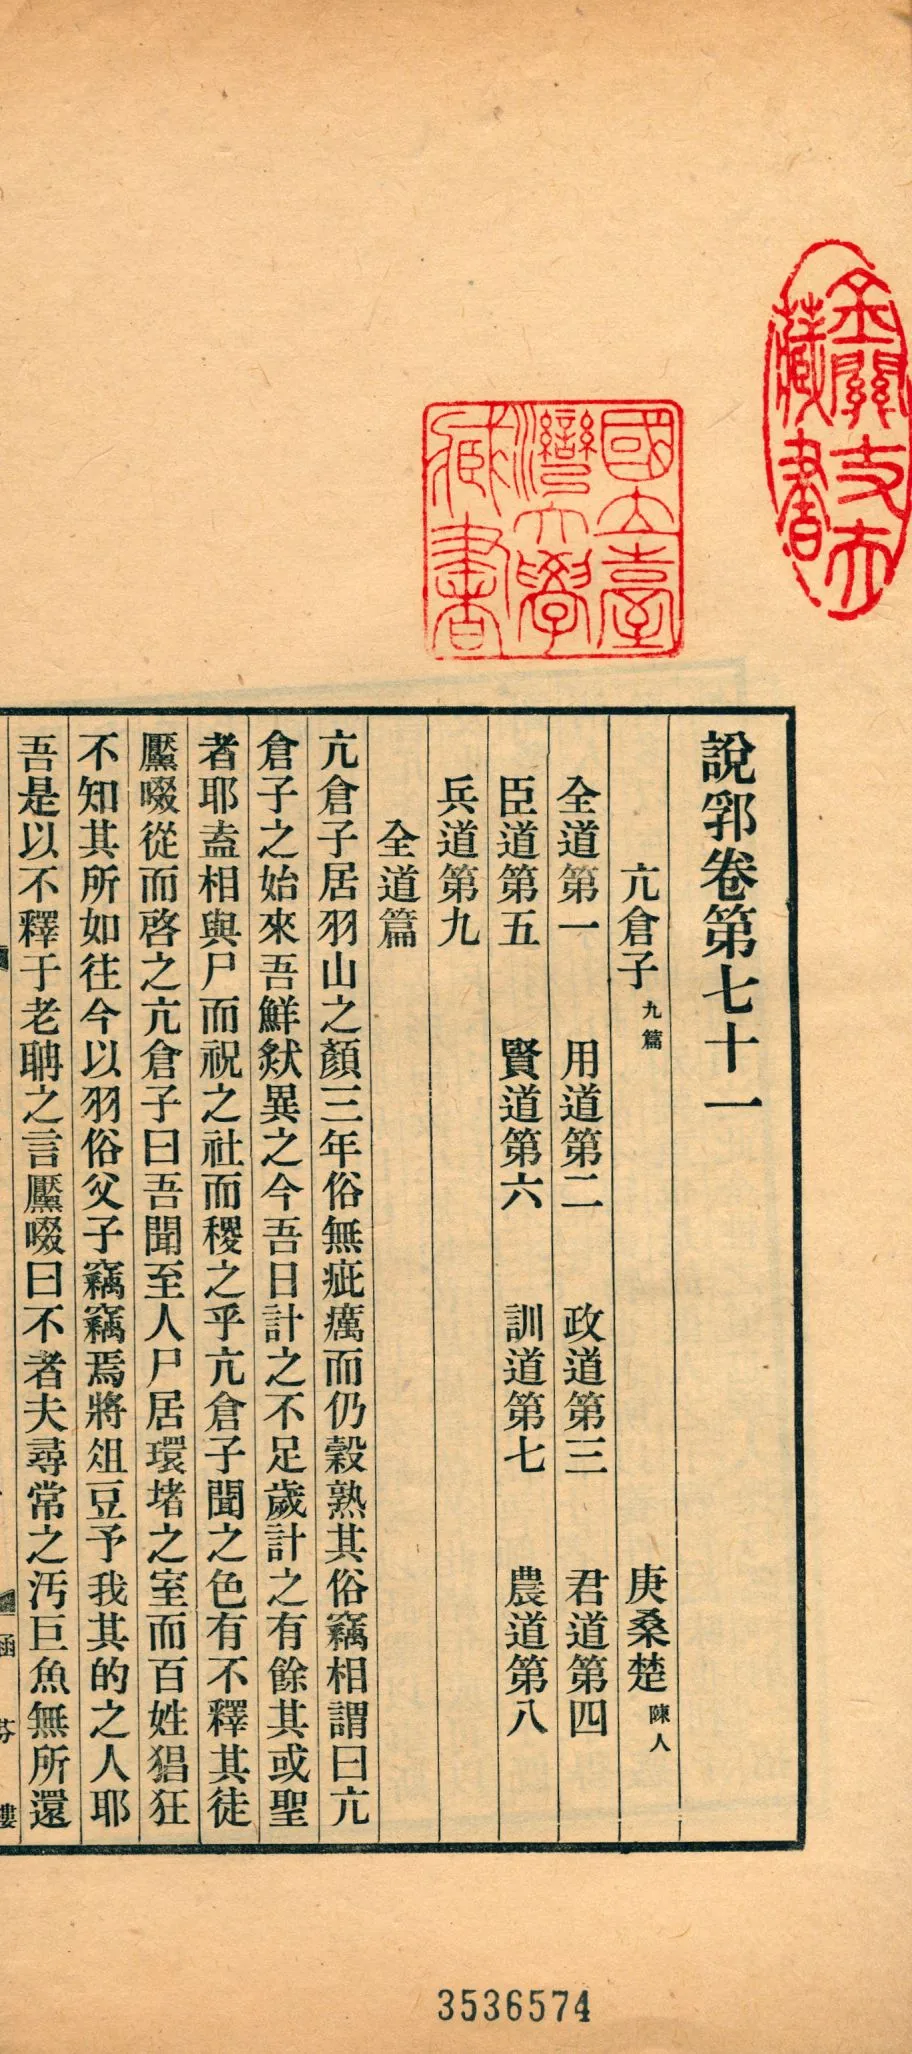 說郛卷第七十一
亢倉子 九篇 庚桑楚 陳人
全道第一 用道第二 政道第三 君道第四
臣道第五 賢道第六 訓道第七 農道第八
兵道第九
全道篇
亢倉子居羽山之顏三年俗無疵癘而仍穀熟其俗竊相謂曰亢
倉子之始來吾鮮然異之今吾日計之不足歲計之有餘其或聖
者耶盍相與尸而祝之社而稷之乎亢倉子聞之色有不釋其徒
啜從而啓之亢倉子曰吾聞至人尸居環堵之室而百姓猖狂
不知其所如往今以羽俗父子竊竊焉將俎豆予我其的之人耶
吾是以不釋于老聃之言啜曰不者夫尋常之汚巨魚無所還
涵芬樓
國立臺灣大學藏書
藏書
3536574